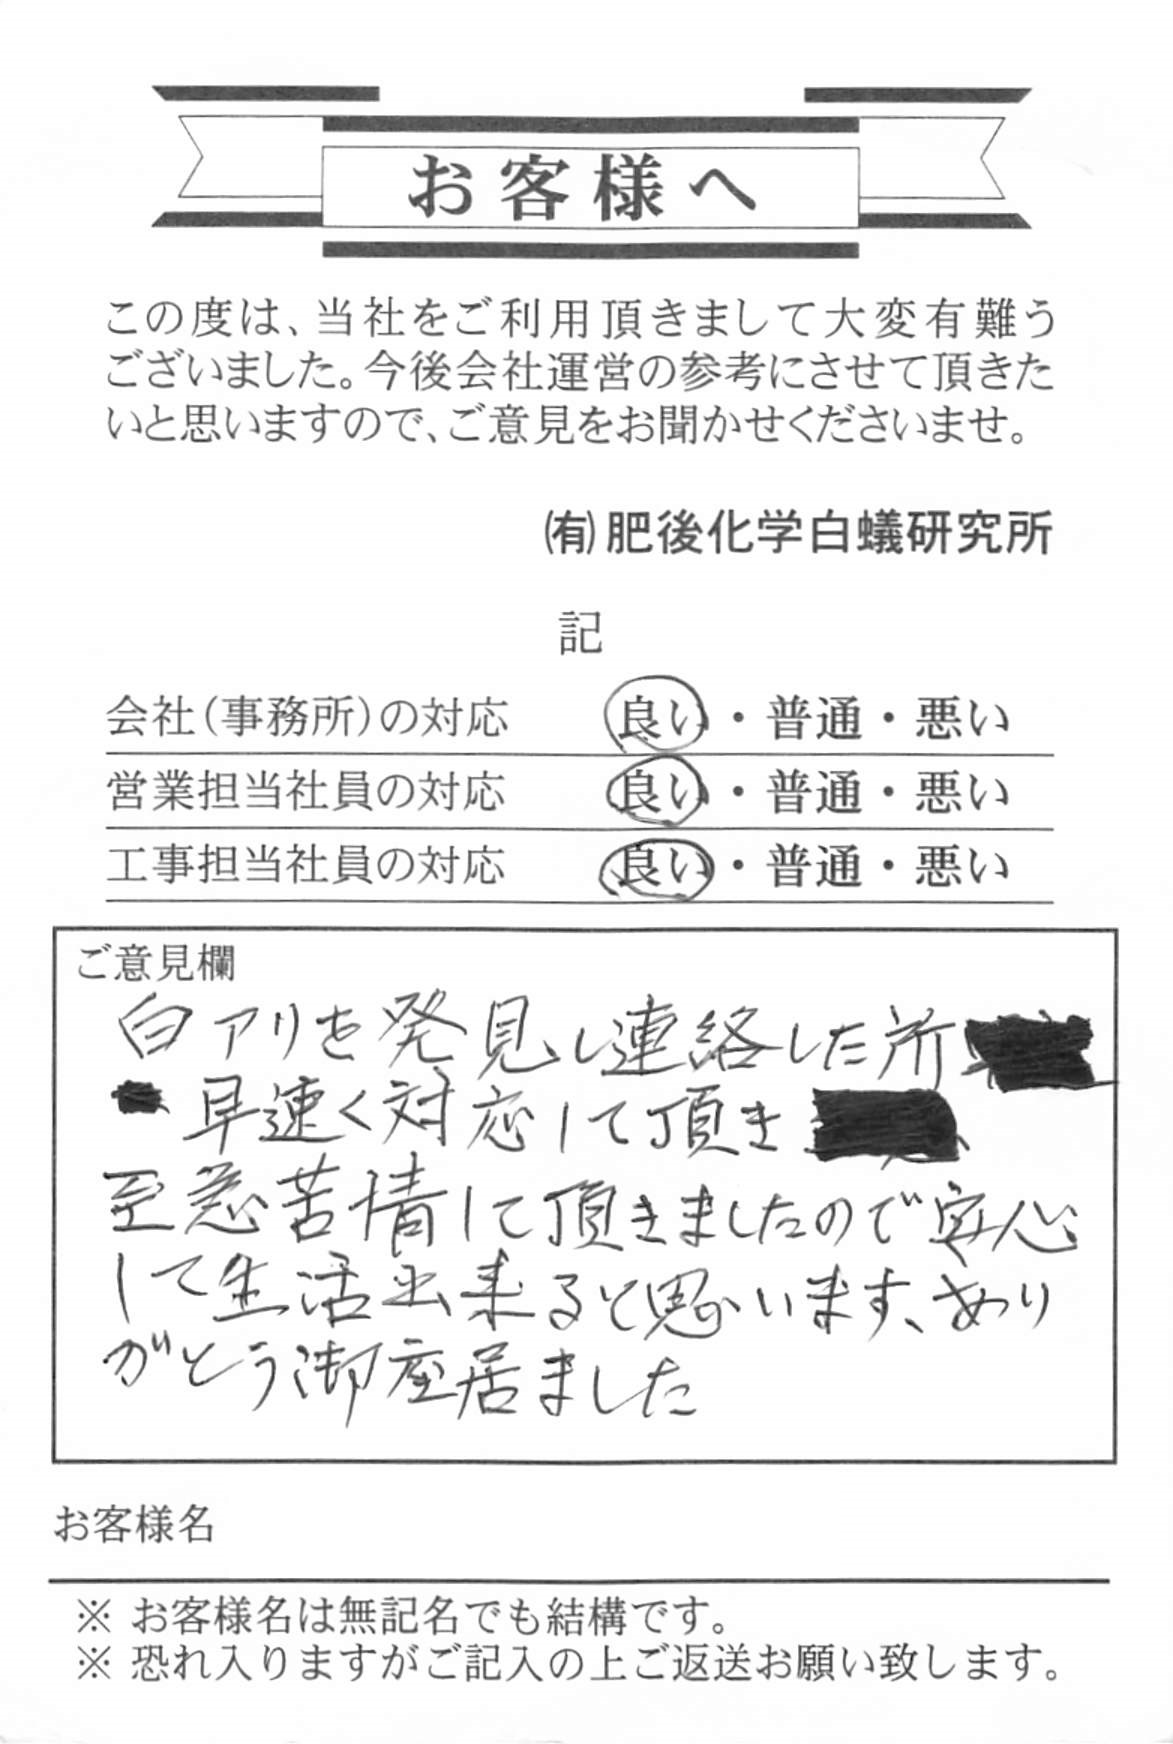 お客様へ
この度は、当社をご利用頂きまして大変有難う
ございました。今後会社運営の参考にさせて頂きた
いと思いますので、ご意見をお聞かせくださいませ。
㈲肥後化学白蟻研究所
記
会社(事務所)の対応 良い・普通・悪い
営業担当社員の対応 良い・普通・悪い
工事担当社員の対応 良い・普通・悪い
ご意見欄
白アリを発見し連絡した所
早速く対応して頂き
至急苦情して頂きましたので安心
して生活出来ると思います、あり
がとう御座居ました
お客様名
※ お客様名は無記名でも結構です。
※ 恐れ入りますがご記入の上ご返送お願い致します。